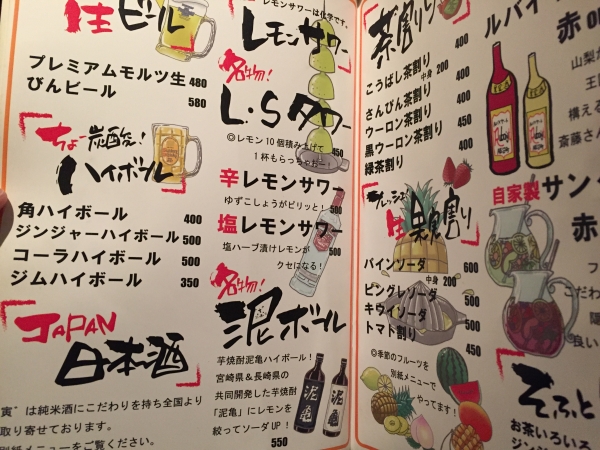 生ビール
プレミアムモルツ生 480
びんビール 580
ちょー炭酸強!
ハイボール
角ハイボール 400
ジンジャーハイボール 500
コーラハイボール 500
ジムハイボール 350
JAPAN
日本酒
寅"は純米酒にこだわりを持ち全国より
取り寄せております。
別紙メニューをご覧ください。
レモンサワーは化学です。
レモンサワー
名物!
L・Sタワー
◎レモン10個積み上げて 450
1杯もらっちゃお〜
辛レモンサワー
ゆずこしょうがピリッと! 500
塩レモンサワー
塩ハーブ漬けレモンが 500
クセになる!
名物!
泥ボール
芋焼酎泥亀ハイボール!
宮崎県&長崎県の
共同開発した芋焼酎
「泥亀」にレモンを
絞ってソーダUP!
550
泥亀
茶割り
こうばし茶割り 400
中身 200
さんぴん茶割り 400
ウーロン茶割り 400
黒ウーロン茶割り 450
緑茶割り 400
フレッシュ
生果実割り
パインソーダ 600
中身 200
ピングレソーダ 500
キウイソーダ 500
トマト割り 450
◎季節のフルーツを
別紙メニューで
やってます!
ルバイ
赤 or
山梨
王
構える
斎藤さん
自家製サン
赤
フ
こだわ
隠
良い
そふと
お茶いろいろ
ジン